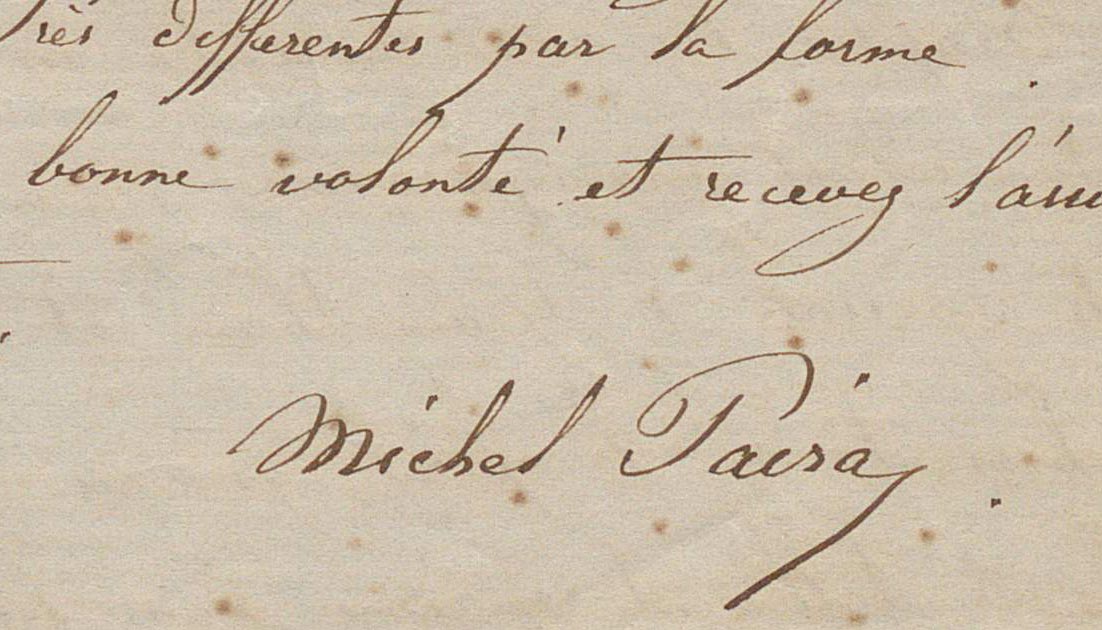 Très differentes par la forme
bonne volonté et recevez l'assu
Michel Paira